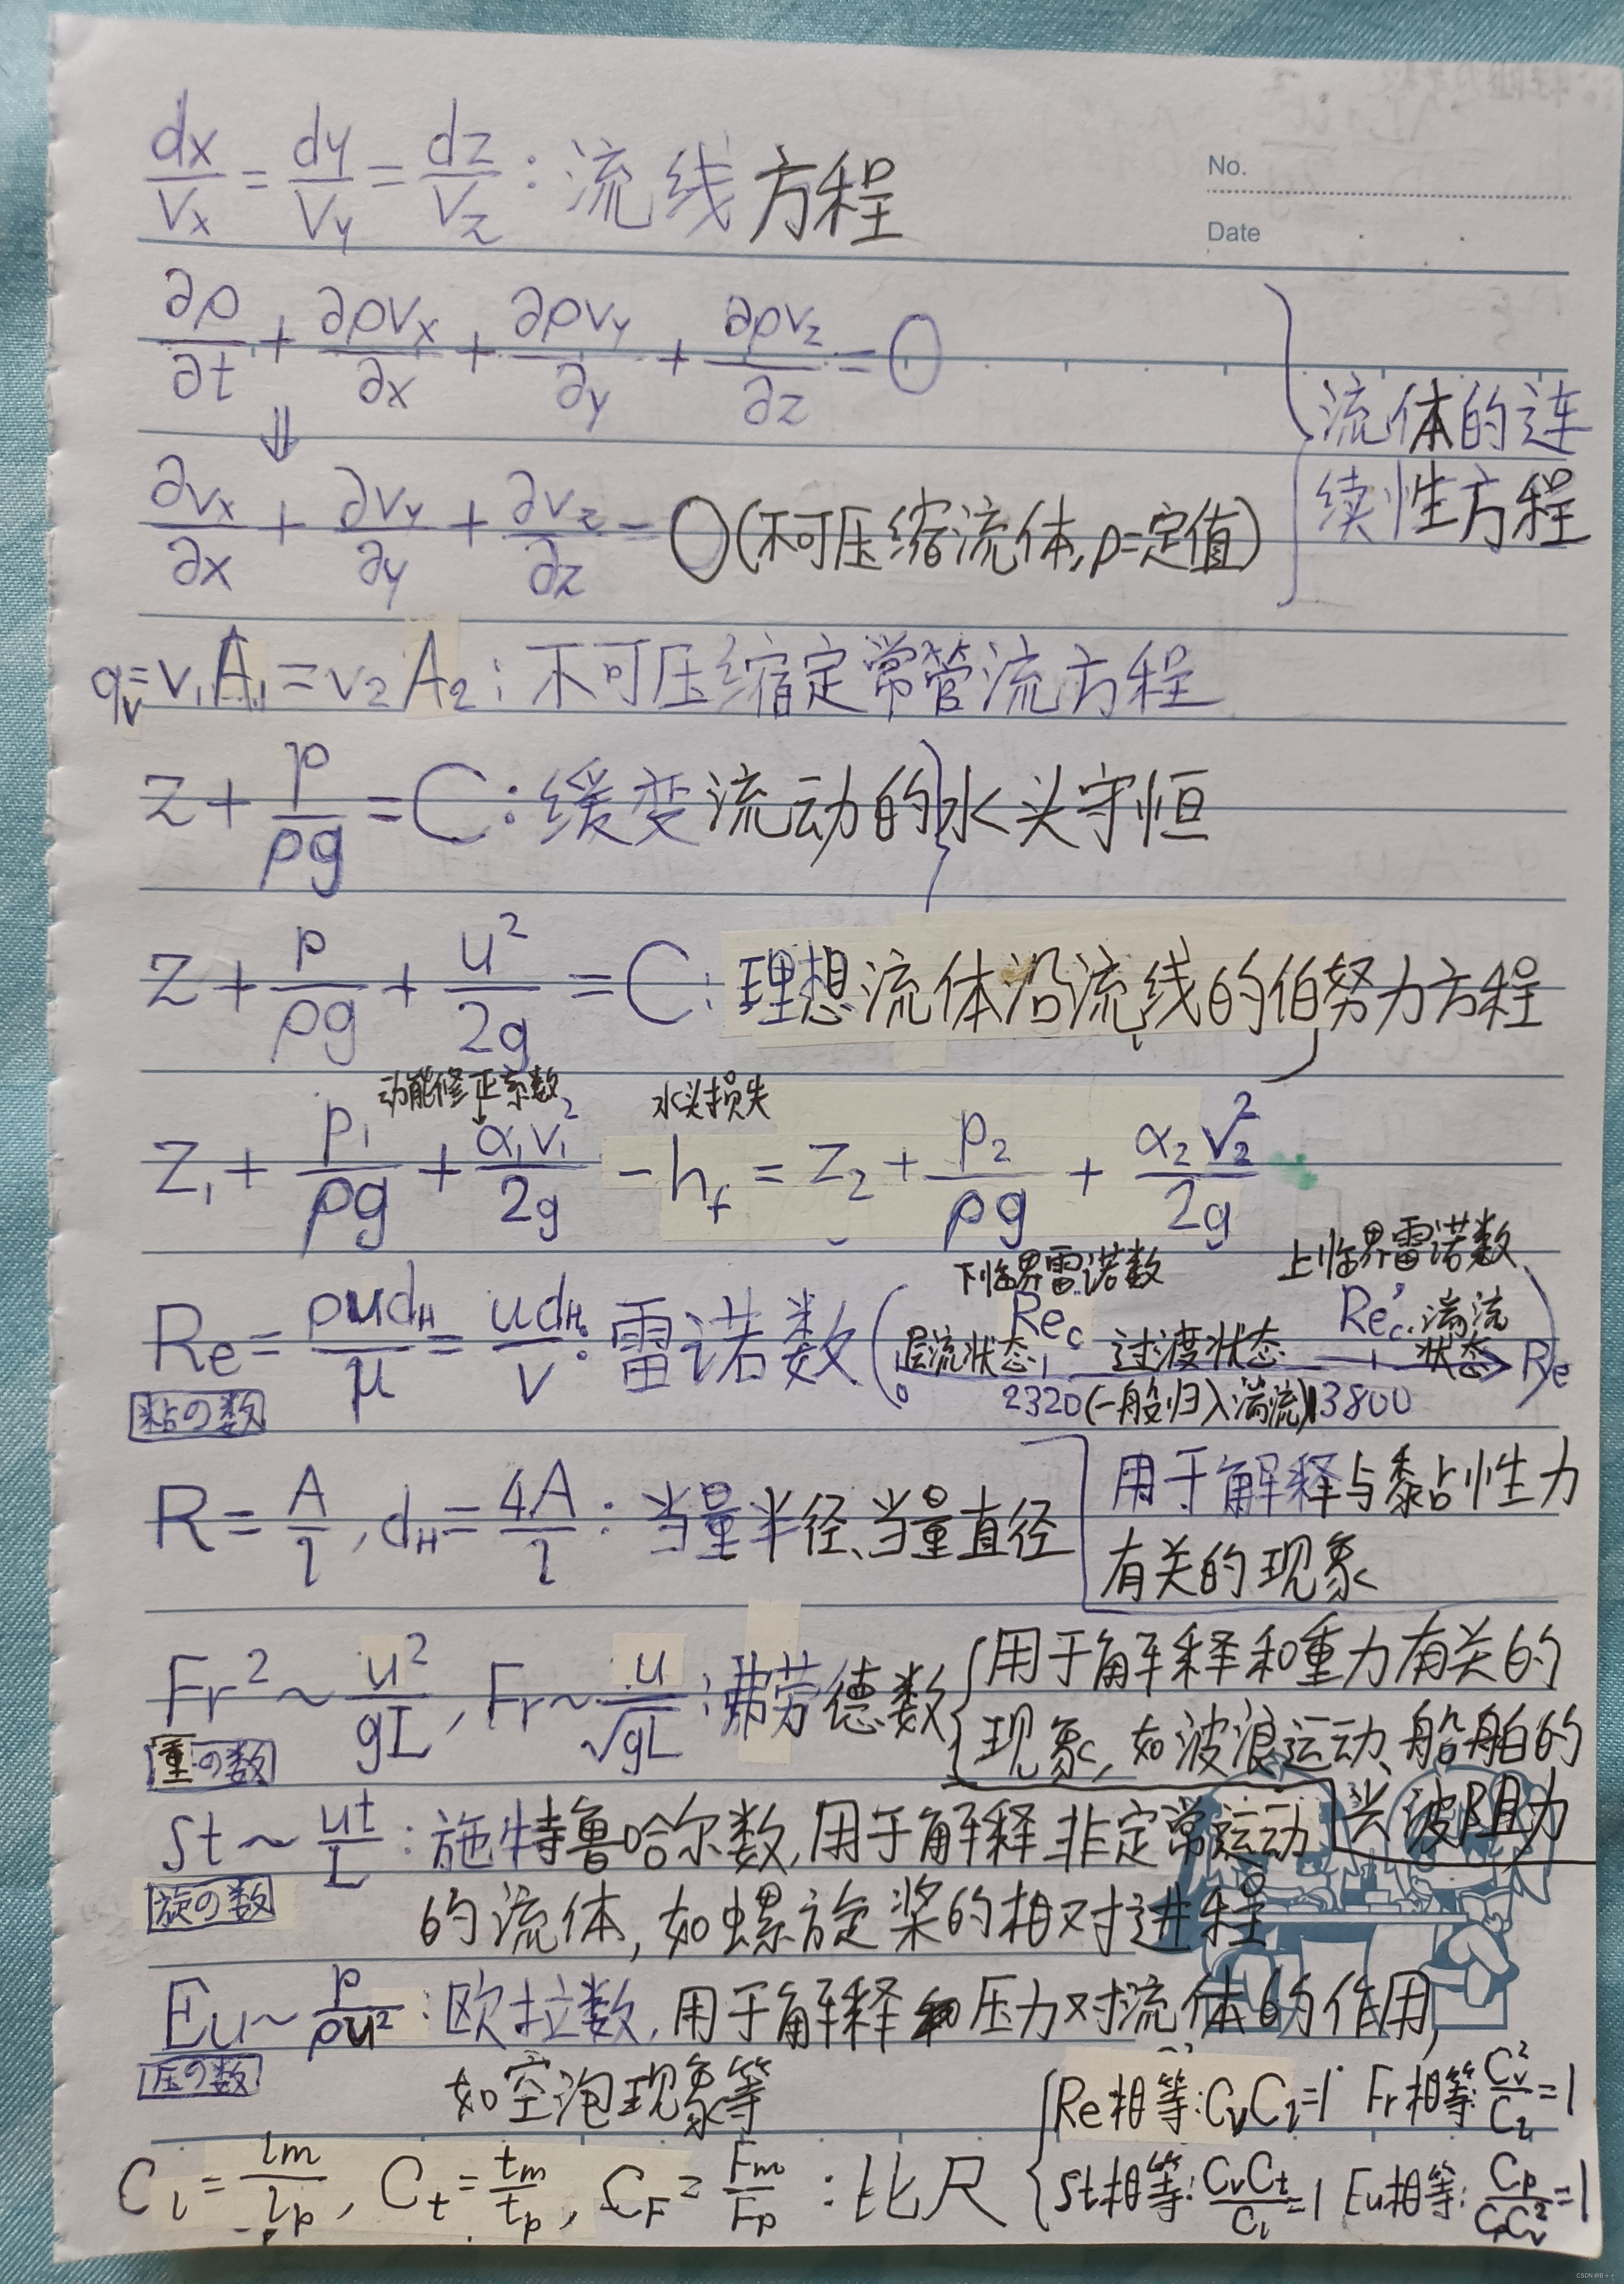 No.
Date
dx/Vx = dy/Vy = dz/Vz : 流线方程
∂ρ/∂t + ∂ρvx/∂x + ∂ρvy/∂y + ∂ρvz/∂z = 0
⇓
∂vx/∂x + ∂vy/∂y + ∂vz/∂z = 0 (不可压缩流体,ρ=定值)
流体的连
续性方程
qv=v₁A₁=v₂A₂ : 不可压缩定常管流方程
z + p/ρg = C : 缓变流动的水头守恒
z + p/ρg + u²/2g = C : 理想流体沿流线的伯努力方程
动能修正系数 水头损失
z₁ + p₁/ρg + α₁v₁²/2g - hf = z₂ + p₂/ρg + α₂v₂²/2g
下临界雷诺数 上临界雷诺数
Re = ρudH/μ = udH/ν : 雷诺数 ( 0 层流状态 Rec 过渡状态 Rec' 湍流状态 Re )
2320 (一般归入湍流) 13800
粘の数
R = A/l , dH = 4A/l : 当量半径、当量直径
用于解释与黏性力
有关的现象
Fr² ~ u²/gL , Fr ~ u/√gL : 弗劳德数
用于解释和重力有关的
现象,如波浪运动、船舶的
兴波阻力
重の数
St ~ ut/L : 施特鲁哈尔数,用于解释非定常运动
旋の数
的流体,如螺旋桨的相对进程
Eu ~ p/ρu² : 欧拉数,用于解释压力对流体的作用,
压の数
如空泡现象等
Cl = lm/lp , Ct = tm/tp , CF = Fm/Fp : 比尺
Re相等:CvCl=1 Fr相等:Cv²/Cl=1
St相等:CvCt/Cl=1 Eu相等:Cp/CρCv²=1